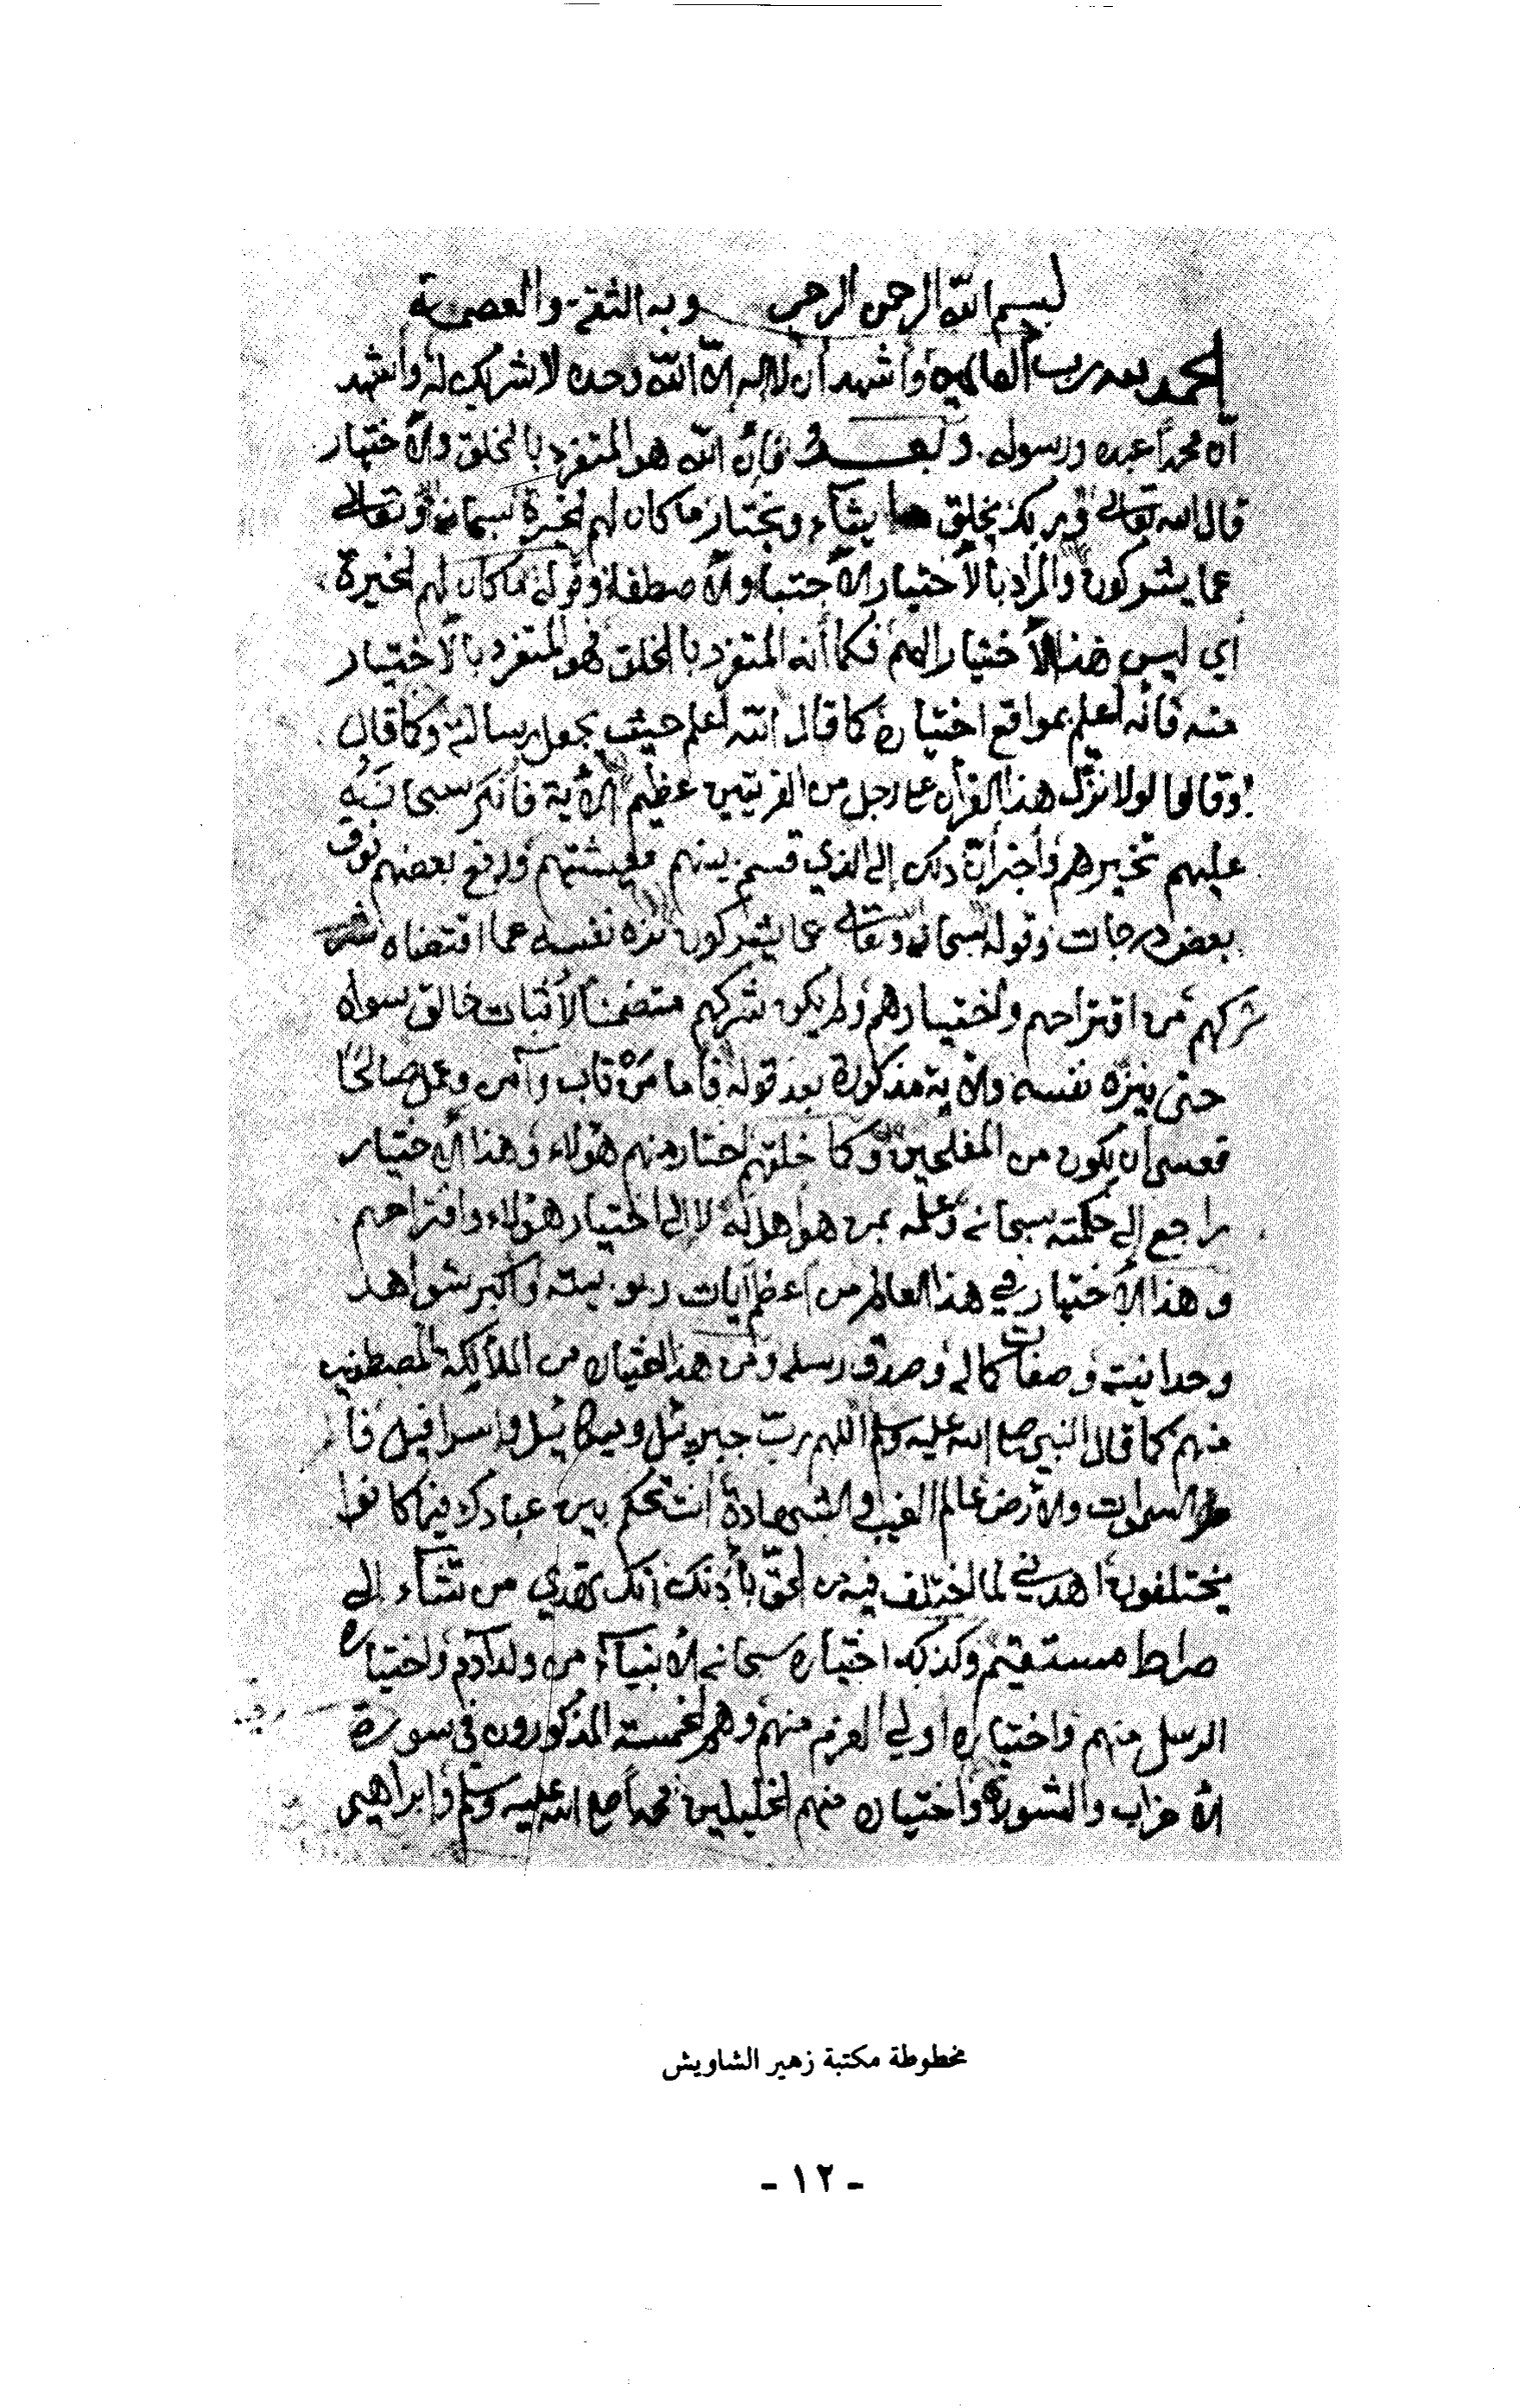 بسم الله الرحمن الرحيم وبه الثقة والعصمة
الحمد لله رب العالمين وأشهد أن لا إله إلا الله وحده لا شريك له وأشهد
أن محمداً عبده ورسوله. وبعد فإن الله هو المتفرد بالخلق والأختيار
قال الله تعالى وربك يخلق ما يشاء ويختار ما كان لهم الخيرة سبحانه وتعالى
عما يشركون والمراد بالأختيار الأجتباء والأصطفاء وقوله ما كان لهم الخيرة
أي ليس هذا الأختيار إليهم فكما أنه المتفرد بالخلق فهو المتفرد بالأختيار
منه فأنه أعلم بمواقع اختياره كما قال الله أعلم حيث يجعل رسالته وكما قال
وقالوا لولا نزل هذا القرآن على رجل من القريتين عظيم الأية فأنكر سبحانه
عليهم تخيرهم وأخبر أن ذلك إلى الذي قسم بينهم معيشتهم ورفع بعضهم فوق
بعض درجات وقوله سبحانه وتعالى عما يشركون نزه نفسه عما اقتضاه
شركهم من اقتراحهم واختيارهم ولم يكن شركهم متضمناً لأثبات خالق سواه
حتى ينزه نفسه والأية مذكورة بعد قوله فأما من تاب وآمن وعمل صالحا
فعسى أن يكون من المفلحين وكما خلقهم اختار منهم هؤلاء وهذا الأختيار
راجع إلى حكمته سبحانه وعلمه بمن هو أهل له لا إلى اختيار هؤلاء واقتراحهم
وهذا الأختيار في هذا العالم من أعظم آيات ربوبيته وأكبر شواهد
وحدانيته وصفات كماله وصدق رسله ومن هذا اختياره من الملائكة المصطفين
منهم كما قال النبي صلى الله عليه وسلم اللهم رب جبرئيل وميكائيل وإسرافيل فا
طر السموات والأرض عالم الغيب والشهادة أنت تحكم بين عبادك فيما كانوا
يختلفون اهدني لما اختلف فيه من الحق بأذنك إنك تهدي من تشاء إلى
صراط مستقيم وكذلك اختياره سبحانه الأنبياء من ولد آدم واختياره
الرسل منهم واختياره أولي العزم منهم وهم الخمسة المذكورون في سورة
الأحزاب والشورى واختياره منهم الخليلين محمداً صلى الله عليه وسلم وإبراهيم
مخطوطة مكتبة زهير الشاويش
- ١٢ -